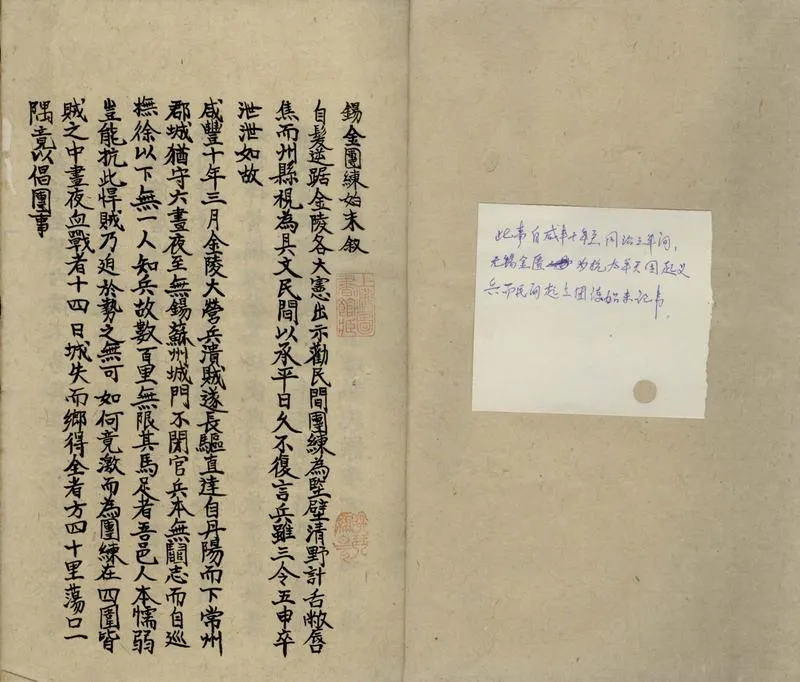 此事自咸丰十年至同治三年间，
无锡金匮为抗太平天国起义
兵而民间起立团练始末记事
錫金團練始末敘
自髮逆踞金陵各大憲出示勸民間團練為堅壁清野計舌敝唇
焦而州縣視為具文民間以承平日久不復言兵雖三令五申卒
泄泄如故
咸豐十年三月金陵大營兵潰賊遂長驅直達自丹陽而下常州
郡城猶守六晝夜至無錫蘇州城門不閉官兵本無鬭志而自巡
撫徐以下無一人知兵故數百里無限其馬足者吾邑人本懦弱
豈能抗此悍賊乃迫於勢之無可如何竟激而為團練在四圍皆
賊之中晝夜血戰者十四日城失而鄉得全者方四十里蕩口一
隅竟以倡團事
上海圖
書館藏